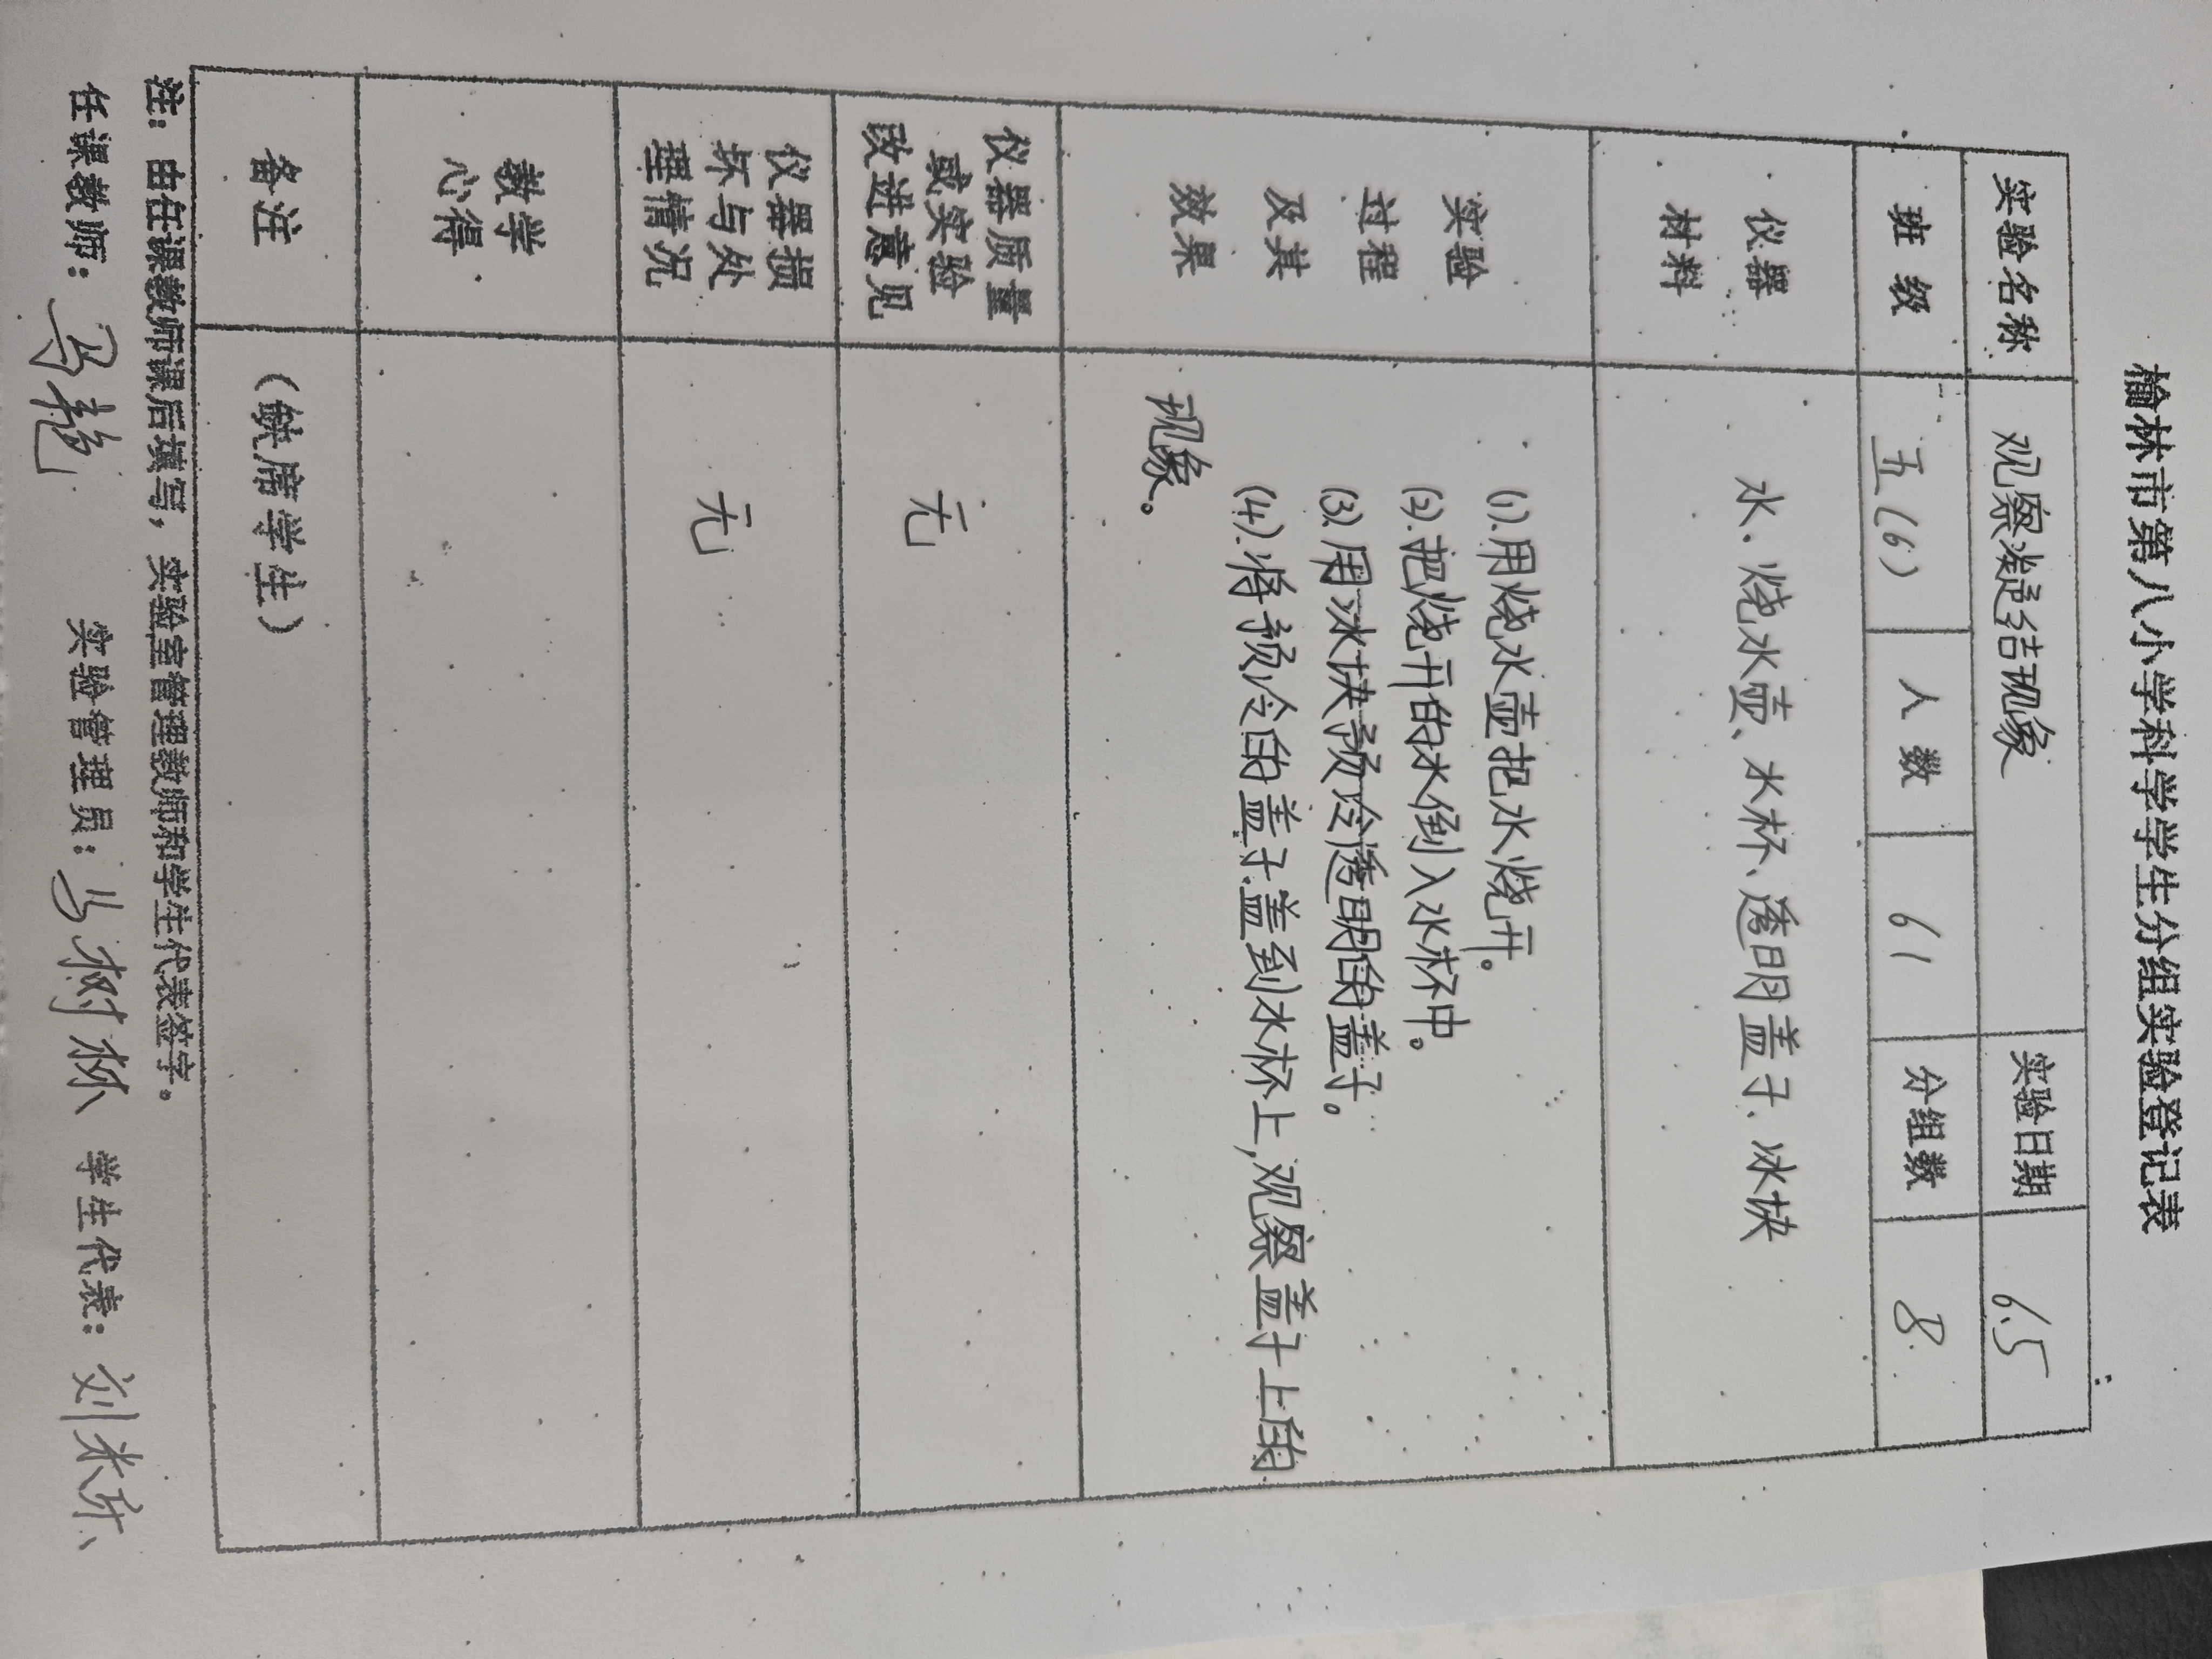 榆林市第八小学科学学生分组实验登记表
实验名称 观察凝结现象 实验日期 6.5
班级 五(6) 人数 61 分组数 8
仪器
材料
水、烧水壶、水杯、透明盖子、冰块
实验
过程
及其
效果
(1).用烧水壶把水烧开。
(2).把烧开的水倒入水杯中。
(3).用冰块预冷透明的盖子。
(4).将预冷的盖子盖到水杯上,观察盖子上的
现象。
仪器质量
或实验
改进意见
无
仪器损
坏与处
理情况
无
教学
心得
备注 (缺席学生)
注：由任课教师课后填写，实验室管理教师和学生代表签字。
任课教师： 实验管理员： 马树林 学生代表： 刘米乐